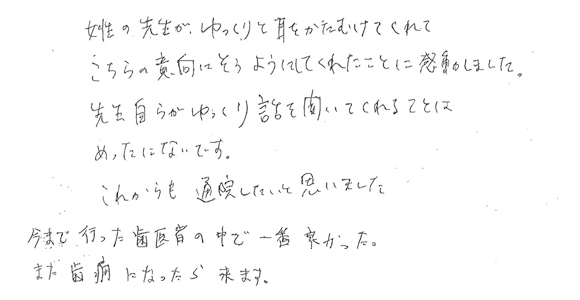 女性の先生が、ゆっくりと耳をかたむけてくれて
こちらの意向にそうようにしてくれたことに感動しました。
先生自らがゆっくり話を聞いてくれることは
めったにないです。
これからも通院したいと思いました
今まで行った歯医者の中で一番良かった。
また歯痛になったら来ます。